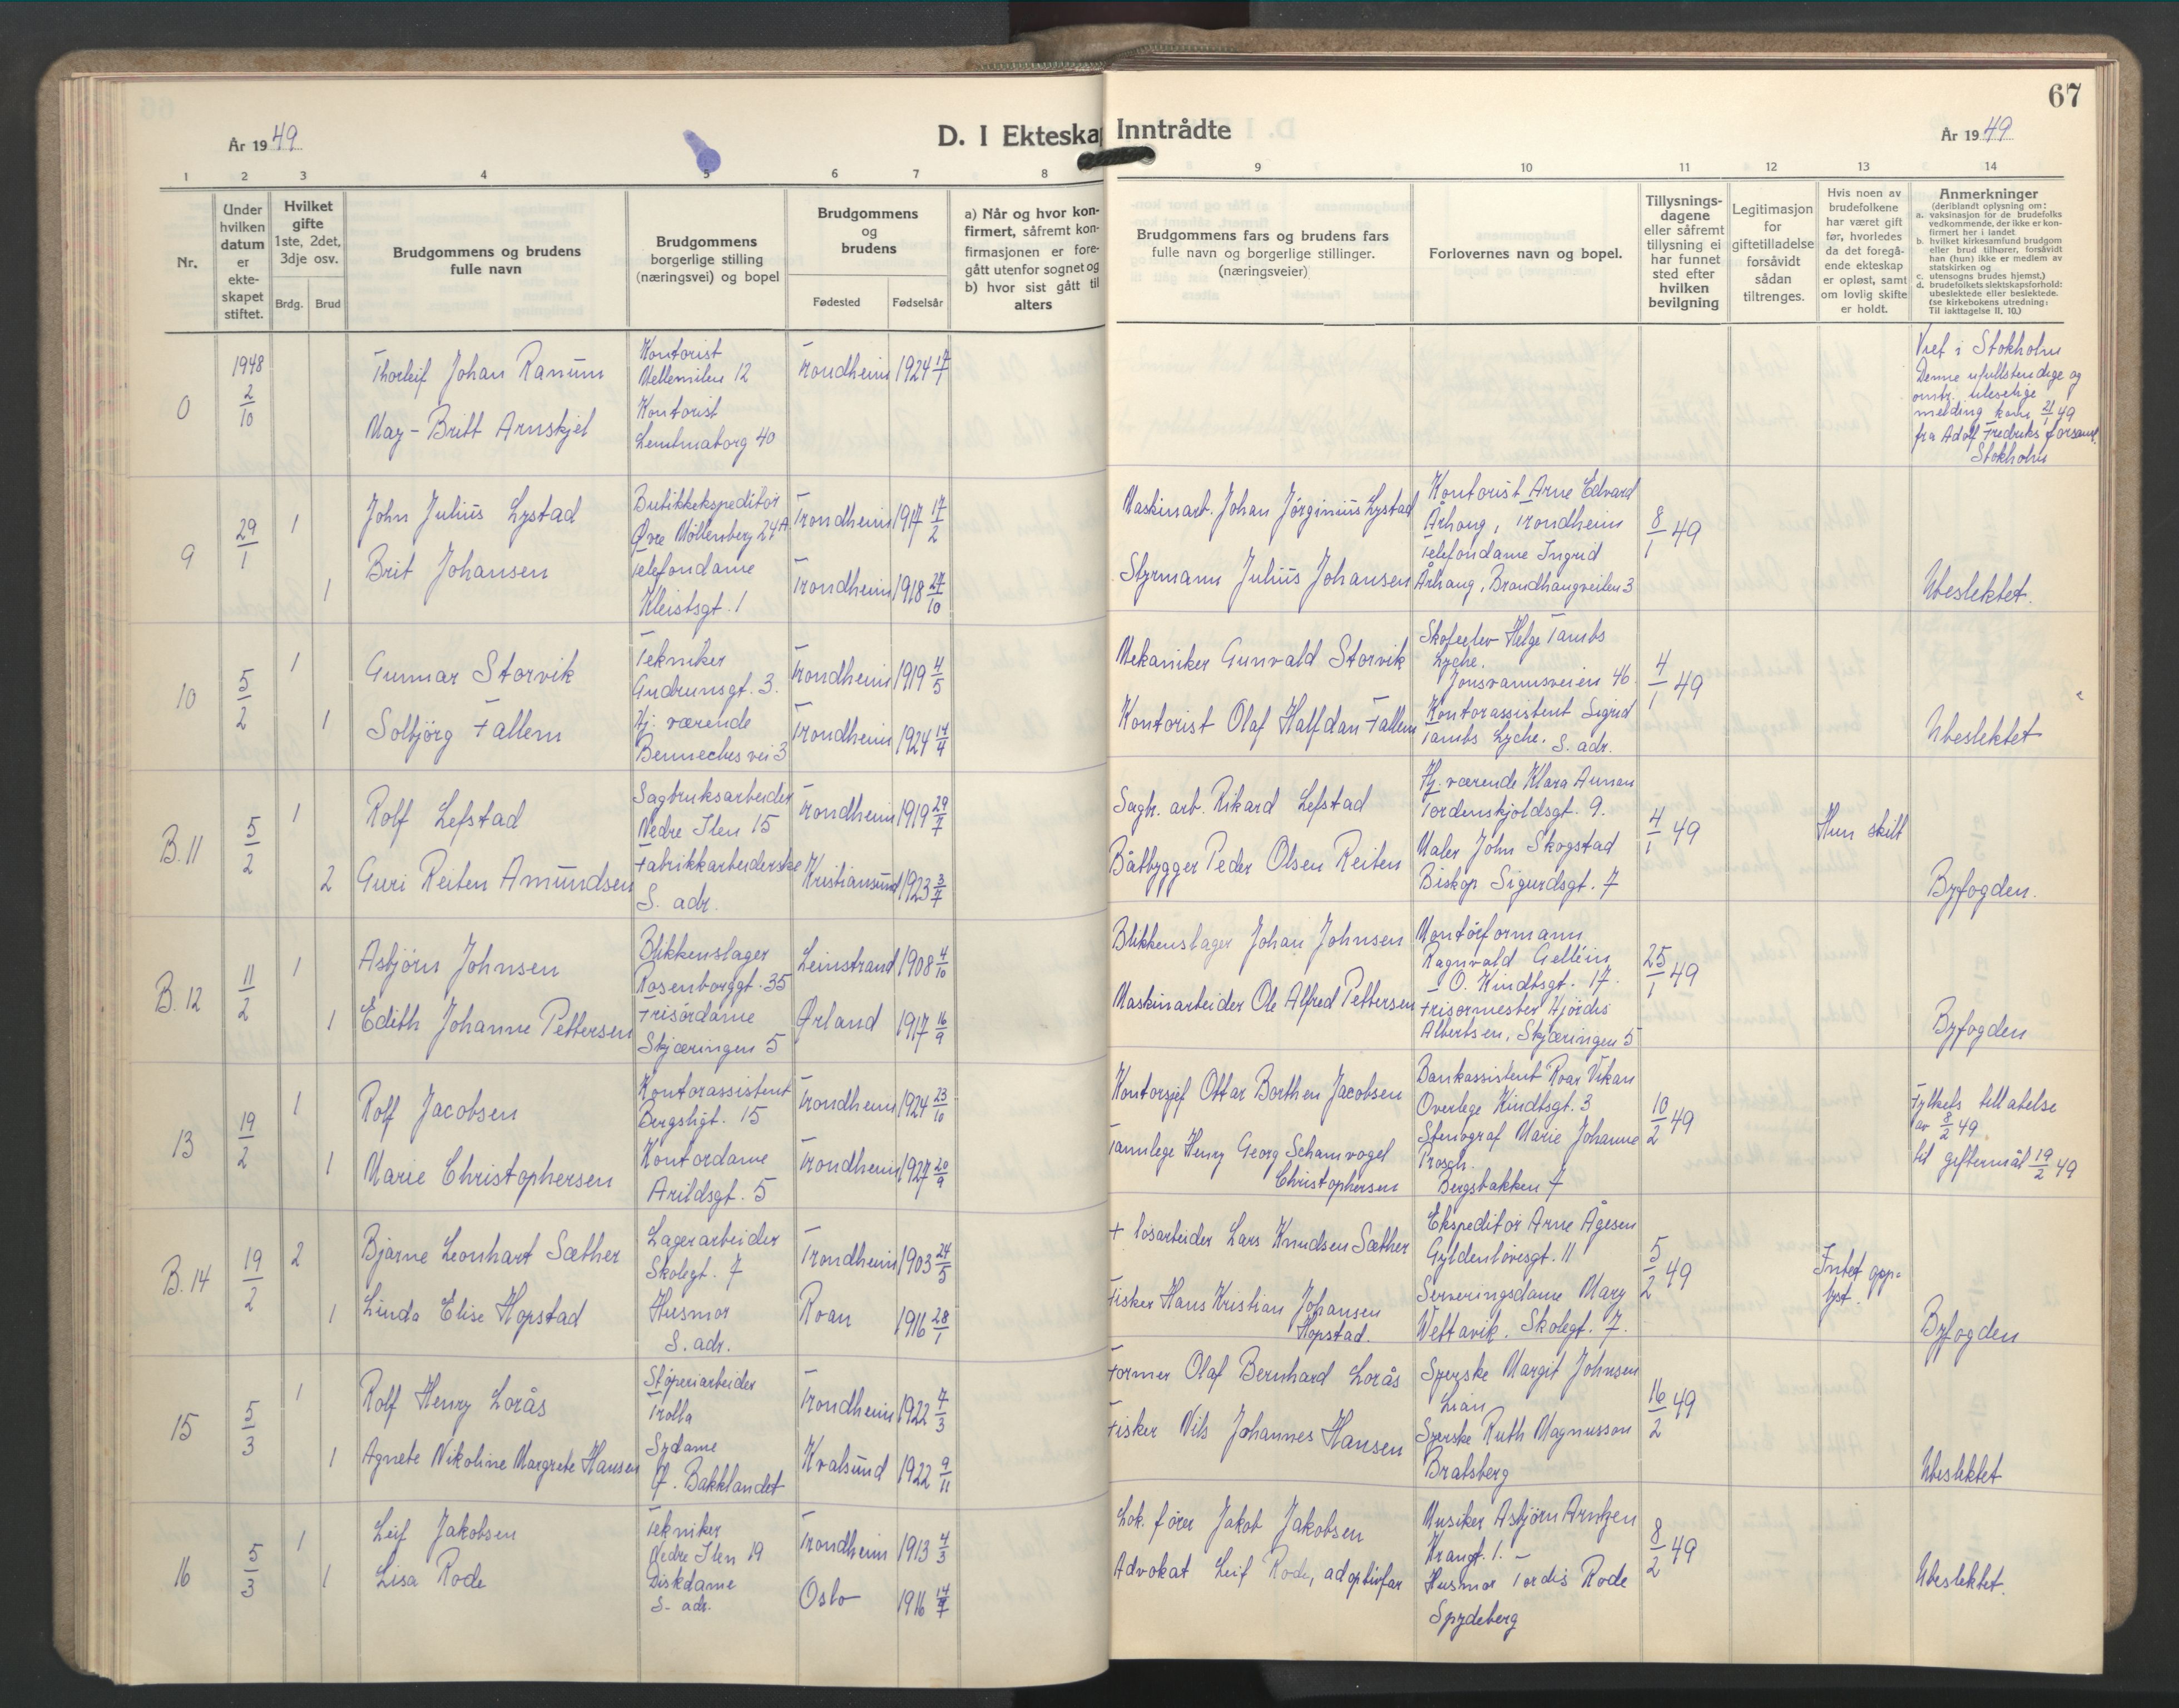 67
År 1949
D. I Ekteskap
Inntrådte
År 1949
1 2 3 4 5 6 7 8
9 10 11 12 13 14
Nr.
Under hvilken datum er ekteskapet stiftet.
Hvilket gifte
1ste, 2det, 3dje osv.
Brdg. Brud
Brudgommens og brudens
fulle navn
Brudgommens
borgerlige stilling
(næringsvei) og bopel
Brudgommens
og
brudens
Fødested Fødselsår
a) Når og hvor kon-
firmert, såfremt kon-
firmasjonen er fore-
gått utenfor sognet og
b) hvor sist gått til
alters
Brudgommens fars og brudens fars
fulle navn og borgerlige stillinger.
(næringsveier)
Forlovernes navn og bopel.
Tillysnings-
dagene
eller såfremt
tillysning ei
har funnet
sted efter
hvilken
bevilgning
Legitimasjon
for
giftetilladelse
forsåvidt
sådan
tiltrenges.
Hvis noen av
brudefolkene
har været gift
før, hvorledes
da det foregå-
ende ekteskap
er opløst, samt
om lovlig skifte
er holdt.
Anmerkninger
(deriblandt oplysning om:
a. vaksinasjon for de brudefolks
vedkommende, der ikke er kon-
firmert her i landet
b. hvilket kirkesamfund brudgom
eller brud tilhører, forsåvidt
han (hun) ikke er medlem av
statskirken og
c. utensogns brudes hjemst.)
d. brudefolkets slektskapsforhold:
ubeslektede eller beslektede.
(se kirkebokens utredning:
Til iakttagelse II. 10.)
0
1948
2/10
Thorleif Johan Ranum
Kontorist
Mellemilen 12
Trondheim 1924 17/1
May-Britt Arnskjel
Kontorist
40
Viet i Stokholm
Denne ufullstendige og
omtr. uleselige
melding kom 21/1 49
fra Adolf Fredriks forsaml.
Stokholm
9
29/1
1
John Julius Lystad
Butikkekspeditør
Øvre Møllenberg 24A
Trondheim 1917 17/2
Maskinarb. Johan Jørginius Lystad
Kontorist Arne Edvard
Århaug, Trondheim
8/1 49
1
Brit Johansen
Telefondame
Kleistsgt. 1
Trondheim 1918 27/10
Styrmann Julius Johansen
Telefondame Ingrid
Århaug, Brandhaugveilen 3
Ubeslektet.
10
5/2
1
Gunnar Storvik
Tekniker
Gudrunsgt. 3.
Trondheim 1919 4/5
Mekaniker Gunvald Storvik
Skoleelev Helge Tambs
Lyche.
Jonsvannsveien 46.
4/1 49
1
Solbjörg Fallem
Hj. værende
Bennechesvei 3
Trondheim 1924 14/4
Kontorist Olaf Halfdan Fallem
Kontorassistent Sigrid
Tambs Lyche. S. adr.
Ubeslektet
B. 11
5/2
1
Rolf Lefstad
Sagbruksarbeider
Nedre Ilen 15
Trondheim 1919 29/7
Sagbr. arb. Rikard Lefstad
Hj. værende Klara Aunan
Tordenskjoldsgt. 9.
4/1 49
Hun skilt
2
Guri Reiten Amundsen
Fabrikkarbeiderske
S. adr.
Kristiansund 1923 3/7
Båtbygger Peder Olsen Reiten
Maler John Skogstad
Biskop Sigurdsgt. 7
Byfogden.
B. 12
11/2
1
Asbjörn Johnsen
Blikkenslager
Rosenborggt. 35
Leinstrand 1908 4/10
Blikkenslager Johan Johnsen
Montörformann
Ragnvald Gellein
T. O. Kindtsgt. 17.
25/1 49
1
Edith Johanne Pettersen
Frisördame
Skjæringen 5
Ørland 1917 16/9
Maskinarbeider Ole Alfred Pettersen
Frisörmester Hjördis
Albertsen, Skjæringen 5
Byfogden
13
19/2
1
Rolf Jacobsen
Kontorassistent
Bergsligt. 15
Trondheim 1924 23/10
Kontorsjef Ottar Borthen Jacobsen
Bankassistent Roar Vikan
Overlege Kindtsgt. 3
10/2 49
Fylkets tillatelse
av 8/2 49
til giftermål 19/2 49
1
Marie Christophersen
Kontordame
Arildsgt. 5
Trondheim 1927 20/9
Tannlege Henry Georg Schamvogel
Christophersen
Stenograf Marie Johanne
Prosch.
Bergsbakken 7
B. 14
19/2
2
Bjarne Leonhart Sæther
Lagerarbeider
Skolegt. 7
Trondheim 1903 24/5
+ lösarbeider Lars Knudsen Sæther
Ekspeditör Arne Ågesen
Gyldenlövesgt. 11
5/2 49
Intet opp-
lyst.
1
Linda Elise Hopstad
Husmor
S. adr.
Roan 1916 28/1
Fisker Hans Kristian Johansen
Hopstad.
Serveringsdame Mary
Wettavik. Skolegt. 7.
Byfogden
15
5/3
1
Rolf Henry Lorås
Stöperiarbeider
Trolla
Trondheim 1922 7/3
Former Olaf Bernhard Lorås
Syerske Margit Johnsen
Lian
16/2 49
1
Agnete Nikoline Margrete Hansen
Sydame
Ø. Bakklandet
Kvalsund 1922 9/11
Fisker Nils Johannes Hansen
Syerske Ruth Magnusson
Bratsberg
Ubeslektet
16
5/3
1
Leif Jakobsen
Tekniker
Nedre Ilen 19
Trondheim 1913 4/3
Lok. fører Jakob Jakobsen
Musiker Asbjørn Arntzen
Krangt. 1.
8/2 49
1
Lisa Rode
Diskdame
S. adr.
Oslo 1916
Advokat Leif Rode, adoptivfar
Husmor Tordis Rode
Spydeberg
Ubeslektet.